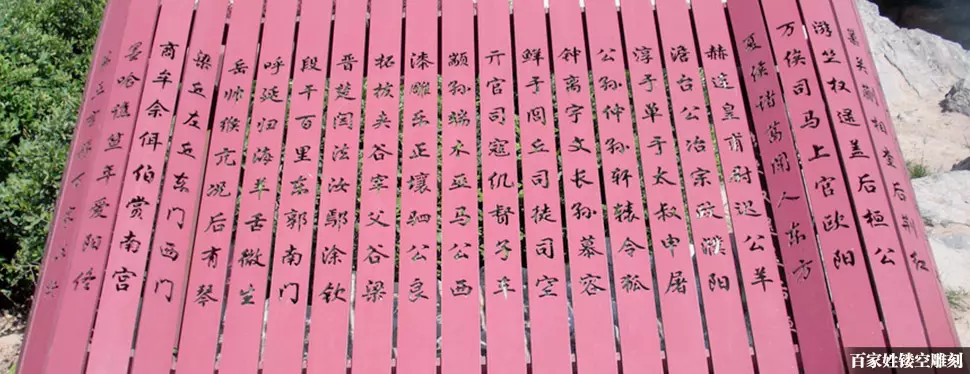 巢关蒯相查后荆红
游竺权逯盖后桓公
万俟司马上官欧阳
夏侯诸葛闻人东方
赫连皇甫尉迟公羊
澹台公冶宗政濮阳
淳于单于太叔申屠
公孙仲孙轩辕令狐
钟离宇文长孙慕容
鲜于闾丘司徒司空
亓官司寇仉督子车
颛孙端木巫马公西
漆雕乐正壤驷公良
拓拔夹谷宰父谷梁
晋楚闫法汝鄢涂钦
段干百里东郭南门
呼延归海羊舌微生
岳帅缑亢况后有琴
梁丘左丘东门西门
商牟余佴伯赏南宫
墨哈谯笪年爱阳佟
百家姓镂空雕刻